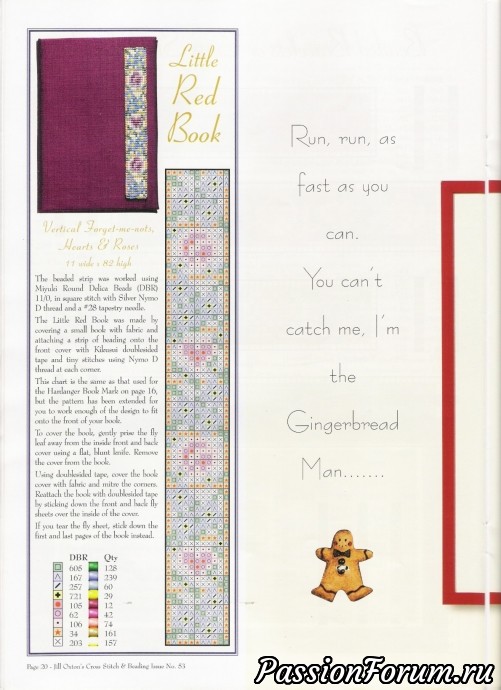 Little
Red
Book
Vertical Forget-me-nots,
Hearts & Roses
11 wide x 82 high
The beaded strip was worked using
Miyuki Round Delica Beads (DBR)
11/0, in square stitch with Silver Nymo
D thread and a #28 tapestry needle.
The Little Red Book was made by
covering a small book with fabric and
attaching a strip of beading onto the
front cover with Kikusui doublesided
tape and tiny stitches using Nymo D
thread at each corner.
This chart is the same as that used for
the Hardanger Book Mark on page 16,
but the pattern has been extended for
you to work enough of the design to fit
onto the front of your book.
To cover the book, gently prise the fly
leaf away from the inside front and back
cover using a flat, blunt knife. Remove
the cover from the book.
Using doublesided tape, cover the book
cover with fabric and mitre the corners.
Reattach the book with doublesided tape
by sticking down the front and back fly
sheets over the inside of the cover.
If you tear the fly sheet, stick down the
first and last pages of the book instead.
DBR Qty
605 128
167 239
257 60
721 29
105 12
62 42
106 74
34 161
203 157
Page 20 - Jill Oxton's Cross Stitch & Beading Issue No. 53
Run, run, as
fast as you
can.
You can't
catch me, I'm
the
Gingerbread
Man.......
PassionForum.ru